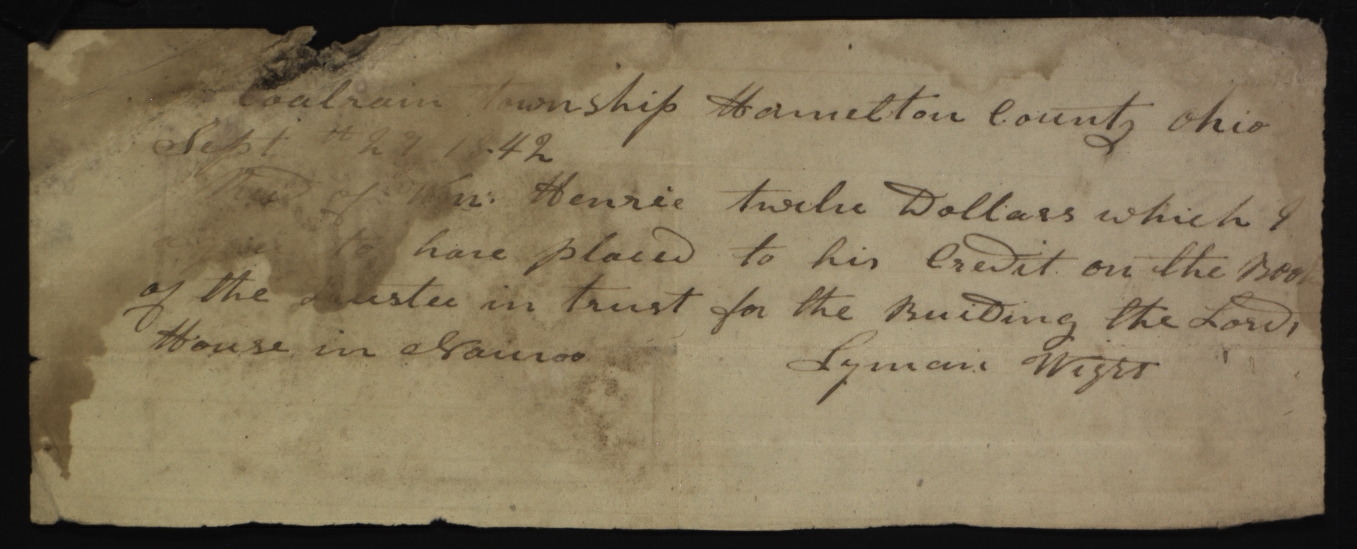 Coalrain township Hamelton County Ohio
Sept 1842
of Wm. Henrie twelve Dollars which I
to have placed to his Credit on the Book
of the trustee in trust for the Buiding the Lords
House in Nauvoo Lyman Wight